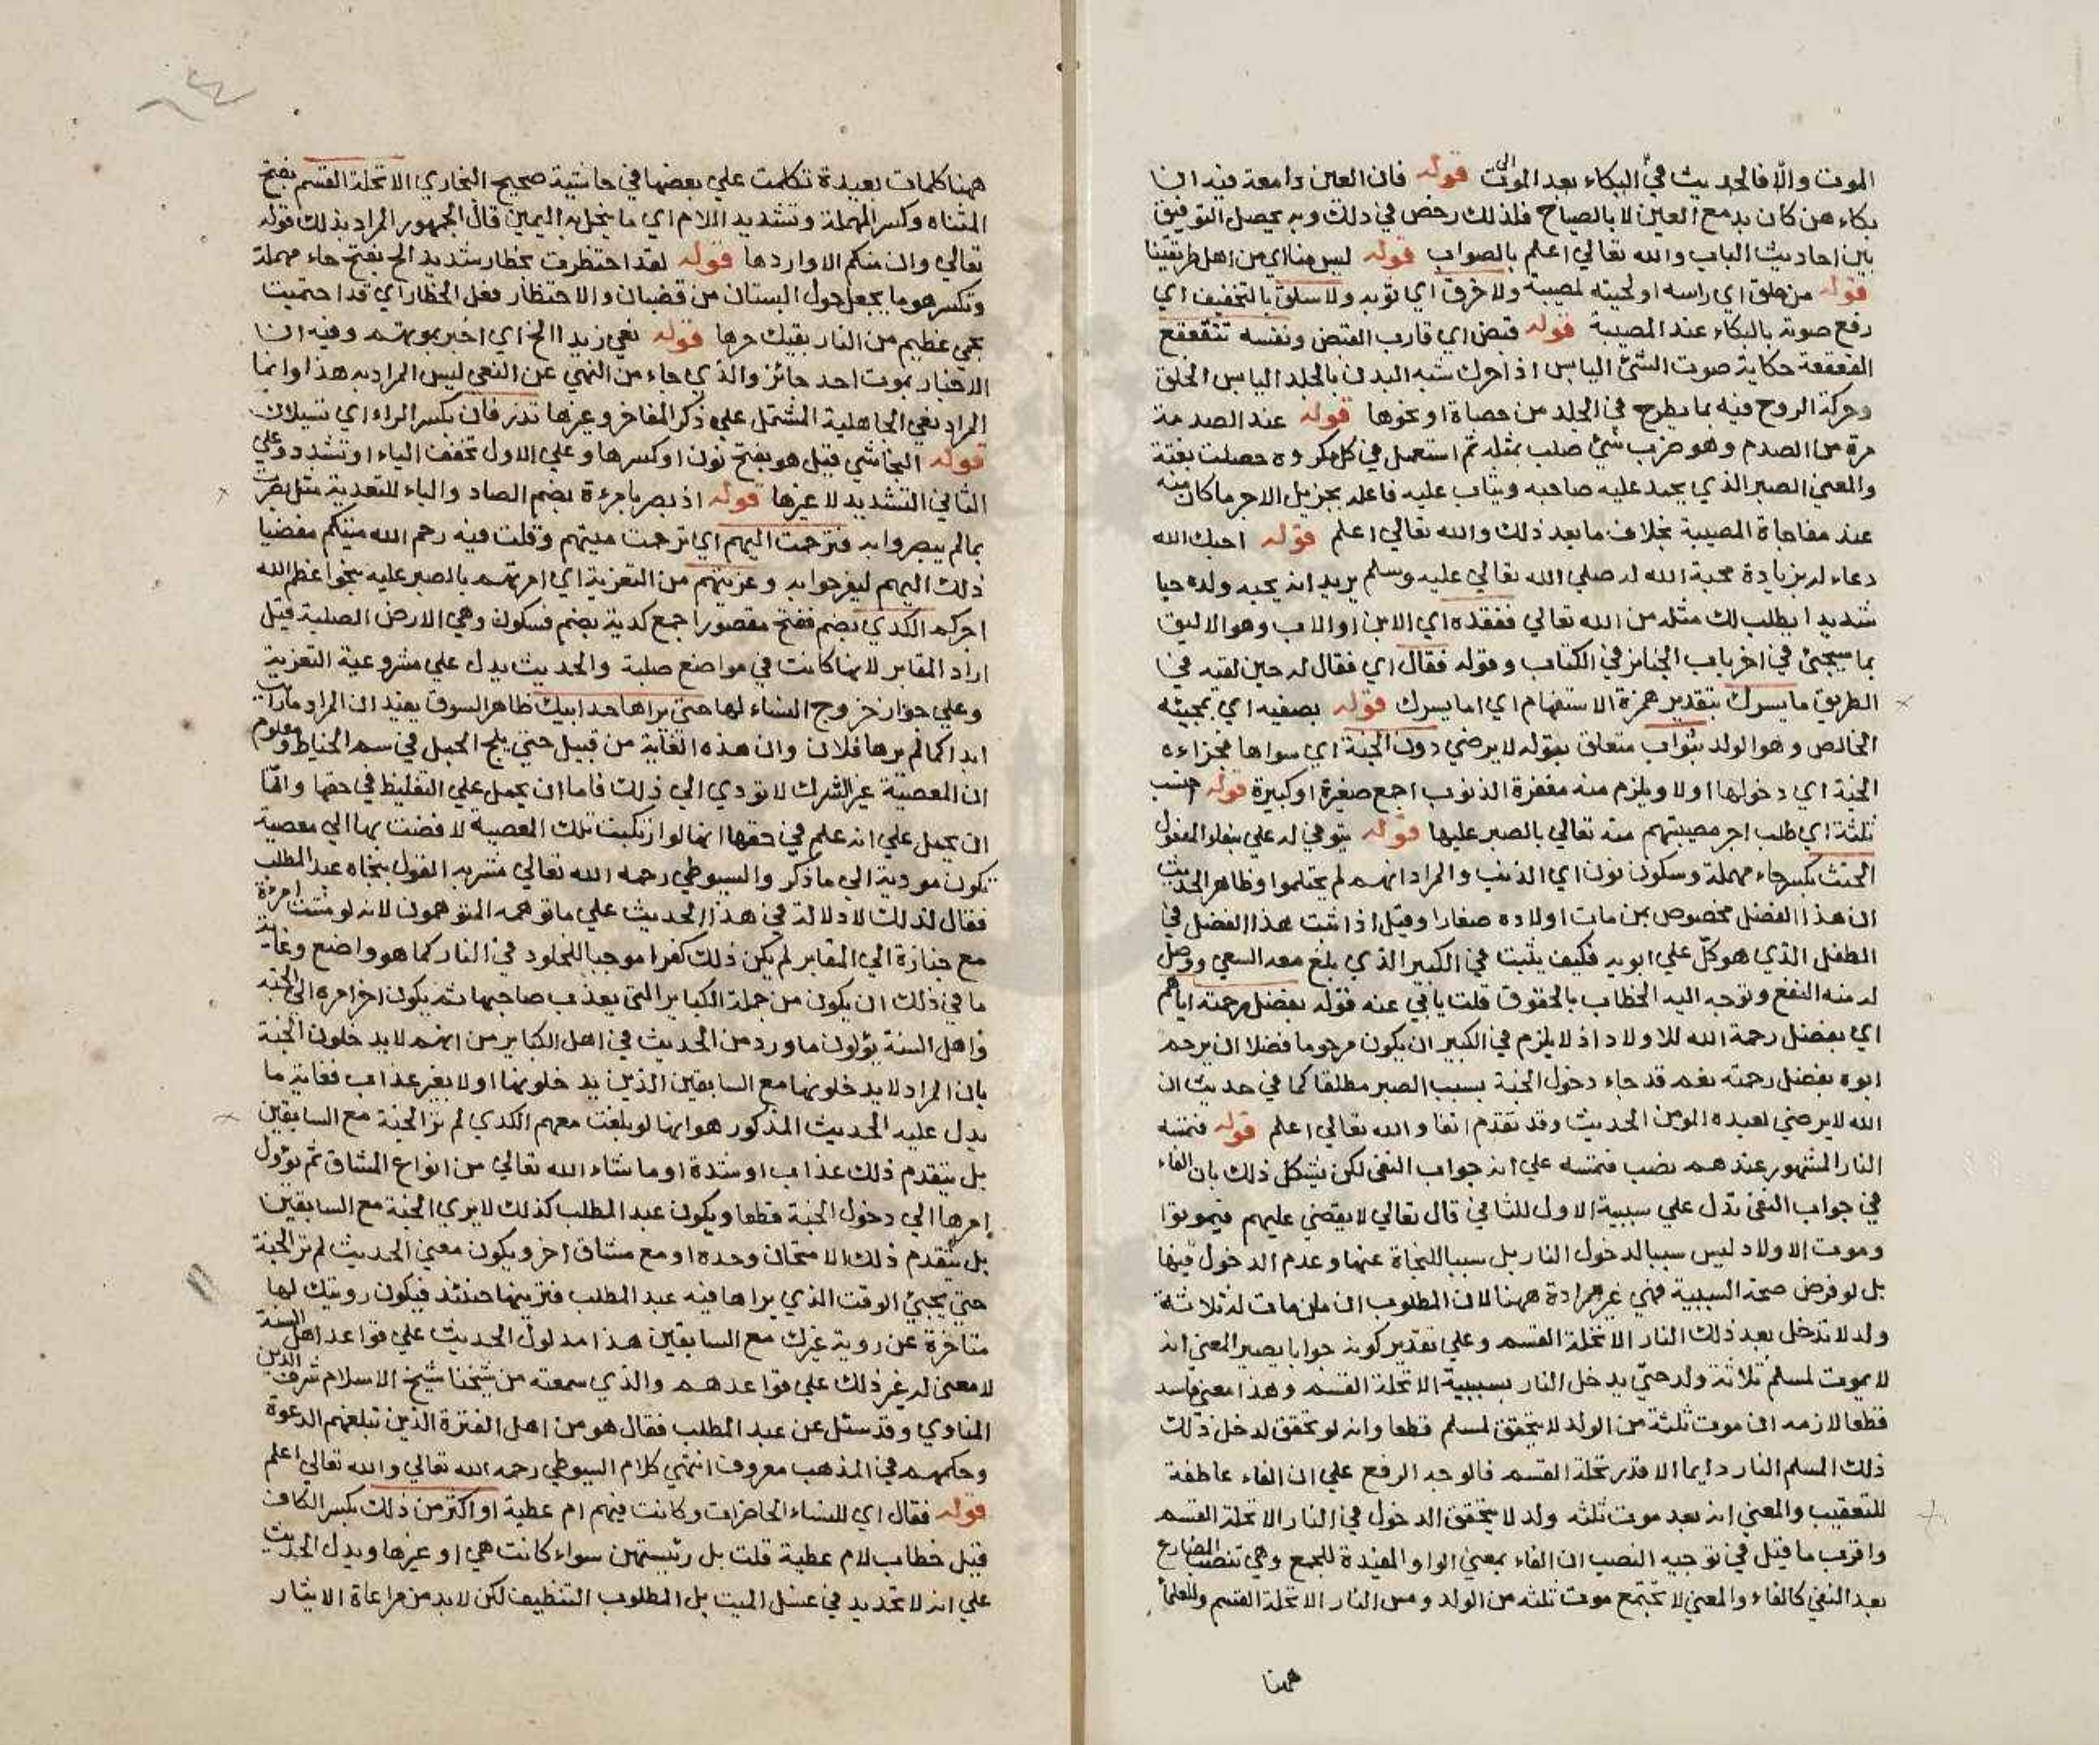 الموت والّا فالحديث في البكاء بعد الموت قوله فان العين دامعة فيه ان
بكاءهن كان بدمع العين لا بالصياح فلذلك رخص في ذلك وبه يحصل التوفيق
بين احاديث الباب والله تعالي اعلم بالصواب قوله ليس منا اي من اهل طريقتنا
قوله من حلق اي راسه او لحيته لمصيبة ولا خرق اي ثوبه ولا سلق بالتخفيف اي
رفع صوته بالبكاء عند المصيبة قوله قبض اي قارب القبض ونفسه تتقعقع
القعقعة حكاية صوت الشئ اليابس اذا حرك شبه البدن بالجلد اليابس الخلق
وحركة الروح فيه بما يطرح في الجلد من حصاة او نحوها قوله عند الصدمة
مرة من الصدم وهو ضرب شئ صلب بمثله ثم استعمل في كل مكروه حصلت بغتة
والمعني الصبر الذي يحمد عليه صاحبه ويثاب عليه فاعله بجزيل الاجر ما كان منه
عند مفاجاة المصيبة بخلاف ما بعد ذلك والله تعالي اعلم قوله احبك الله
دعاء له بزيادة محبة الله له صلي الله تعالي عليه وسلم يريد انه يحبه ولده حبا
شديدا يطلب لك مثله من الله تعالي ففقده اي الابن او الاب وهو الاليق
بما سيجئ في اخر باب الجنائز في الكتاب وقوله فقال اي فقال له حين لقيه في
الطريق ما يسرك بتقدير همزة الاستفهام اي اما يسرك قوله بصفيه اي بمحبيه
الخالص وهو الولد بثواب متعلق بقوله لا يرضي دون الجنة اي سواها فجزاءه
الجنة اي دخولها اولا ويلزم منه مغفرة الذنوب اجمع صغيرة او كبيرة قوله احتسب
ثلثة اي طلب اجر مصيبتهم منه تعالي بالصبر عليها قوله يتوفي له علي بناء المفعول
الحنث بكسر حاء مهملة وسكون نون اي الذنب والمراد انهم لم يحتلموا وظاهر الحديث
ان هذا الفضل مخصوص بمن مات اولاده صغارا وقيل اذا ثبت هذا الفضل في
الطفل الذي هو كلّ علي ابويه فكيف يثبت في الكبير الذي بلغ معه السعي ووصل
له منه النفع وتوجه اليه الخطاب بالحقوق قلت يابي عنه قوله بفضل رحمته اياهم
اي بفضل رحمة الله للاولاد اذ لا يلزم في الكبير ان يكون مرحوما فضلا ان يرحم
ابوه بفضل رحمته نعم قد جاء دخول الجنة بسبب الصبر مطلقا كما في حديث ان
الله لا يرضي لعبده المومن الحديث وقد تقدم انفا والله تعالي اعلم قوله فتمسه
النار المشهور عندهم نصب فتمسه علي انه جواب النفي لكن يشكل ذلك بان الفاء
في جواب النفي تدل علي سببية الاول للثاني قال تعالي لا يقضي عليهم فيموتوا
وموت الاولاد ليس سببا لدخول النار بل سببا للنجاة عنها وعدم الدخول فيها
بل لو فرض صحة السببية فهي غير مرادة ههنا لان المطلوب ان من مات له ثلاثة
ولد لا تدخل بعد ذلك النار الا تحلة القسم وعلي تقدير كونه جوابا يصير المعني انه
لا يموت لمسلم ثلاثة ولد حتي يدخل النار بسببية الا تحلة القسم وهذا معني فاسد
قطعا لازمه ان موت ثلثة من الولد لا يتحقق لمسلم قطعا وانه لو تحقق لدخل ذلك
ذلك المسلم النار دايما الا قدر تحلة القسم فالوجه الرفع علي ان الفاء عاطفة
للتعقيب والمعني انه بعد موت ثلثة ولد لا يتحقق الدخول في النار الا تحلة القسم
واقرب ما قيل في توجيه النصب ان الفاء بمعني الواو المفيدة للجمع وهي تنصب المضارع
بعد النفي كالفاء والمعني لا تجتمع موت ثلثة من الولد ومس النار الا تحلة القسم وللعلماء
ههنا
ههنا كلمات بعيدة تكلمت علي بعضها في حاشية صحيح البخاري الا تحلة القسم بفتح
المثناه وكسر المهملة وتشديد اللام اي ما ينحل به اليمين قال الجمهور المراد بذلك قوله
تعالي وان منكم الا واردها قوله لقد احتظرت بحظار شديد الخ بفتح حاء مهملة
وتكسر هو ما يجعل حول البستان من قضبان والاحتظار فعل الحظار اي قد احتميت
بحمي عظيم من النار يقيك حرها قوله نعي زيدا الخ اي اخبر بموتهم وفيه ان
الاخبار بموت احد جائز والذي جاء من النهي عن النعي ليس المراد به هذا وانما
المراد نعي الجاهلية المشتمل علي ذكر المفاخر وغيرها تذرفان بكسر الراء اي تسيلان
قوله النجاشي قيل هو بفتح نون او كسرها وعلي الاول تخفف الياء او تشدد وعلي
الثاني التشديد لا غيرها قوله اذ بصر بامرءة بضم الصاد والباء للتعدية مثل بصرت
بما لم يبصروا به فترحمت اليهم اي ترحمت ميتهم وقلت فيه رحم الله ميتكم مفضيا
ذلك اليهم ليفرحوا به وعزيتهم من التعزية اي امرتهم بالصبر عليه بنحو اعظم الله
اجركم الكدي بضم ففتح مقصورا جمع كدية بضم فسكون وهي الارض الصلبة قيل
اراد المقابر لانها كانت في مواضع صلبة والحديث يدل علي مشروعية التعزية
وعلي جواز خروج النساء لها حتي يراها جد ابيك ظاهر السوق يفيد ان المراد ما رات
ابدا كما لم يرها فلان وان هذه الغاية من قبيل حتي يلج الجمل في سم الخياط ومعلوم
ان المعصية غير الشرك لا تودي الي ذلك فاما ان يحمل علي التغليظ في حقها واما
ان يحمل علي انه علم في حقها انها لو ارتكبت تلك المعصية لافضت بها الي معصية
تكون مودية الي ما ذكر والسيوطي رحمه الله تعالي مشربه القول بنجاة عبد المطلب
فقال لذلك لا دلالة في هذا الحديث علي ما توهمه المتوهمون لانه لو مشت امرءة
مع جنازة الي المقابر لم يكن ذلك كفرا موجبا للخلود في النار كما هو واضح وغاية
ما في ذلك ان يكون من جملة الكبائر التي يعذب صاحبها ثم يكون اخر امره الي الجنة
واهل السنة يؤولون ما ورد من الحديث في اهل الكبائر من انهم لا يدخلون الجنة
بان المراد لا يدخلونها مع السابقين الذين يدخلونها اولا بغير عذاب فغاية ما
يدل عليه الحديث المذكور هو انها لو بلغت معهم الكدي لم تر الجنة مع السابقين
بل يتقدم ذلك عذاب او شدة او ما شاء الله تعالي من انواع المشاق ثم يؤول
امرها الي دخول الجنة قطعا ويكون عبد المطلب كذلك لا يري الجنة مع السابقين
بل يتقدم ذلك الامتحان وحده او مع مشاق اخر ويكون معني الحديث لم تر الجنة
حتي يجئ الوقت الذي يراها فيه عبد المطلب فترينها حينئذ فيكون رويتك لها
متاخرة عن روية غيرك مع السابقين هذا مدلول الحديث علي قواعد اهل السنة
لا معني له غير ذلك علي قواعدهم والذي سمعته من شيخنا شيخ الاسلام شرف الدين
المناوي وقد سئل عن عبد المطلب فقال هو من اهل الفترة الذين لم تبلغهم الدعوة
وحكمهم في المذهب معروف انتهي كلام السيوطي رحمه الله تعالي والله تعالي اعلم
قوله فقال اي للنساء الحاضرات وكانت فيهم ام عطية او اكثر من ذلك بكسر الكاف
قيل خطاب لام عطية قلت بل رئيستهن سواء كانت هي او غيرها ويدل الحديث
علي انه لا تحديد في غسل الميت بل المطلوب التنظيف لكن لا بد من مراعاة الايتار